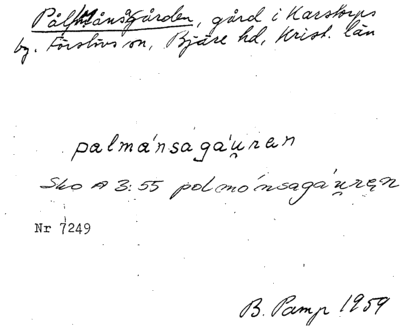 Pålmånsgården, gård i Karstorps
by. Förslövs sn, Bjäre hd, Krist. län
palmánsagáu̯ren
Sko A 3:55 polmónsagáu̯ręn
Nr 7249
B. Pamp 1959